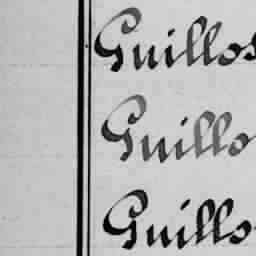 Guillos
Guillo
Guillo